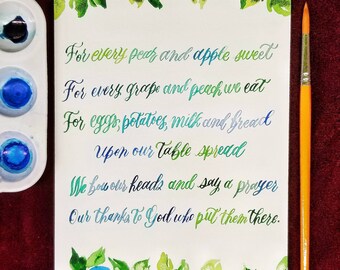 For every pear and apple sweet
For every grape and peach we eat
For eggs, potatoes, milk and bread
Upon our table spread
We bow our heads and say a prayer
Our thanks to God who put them there.